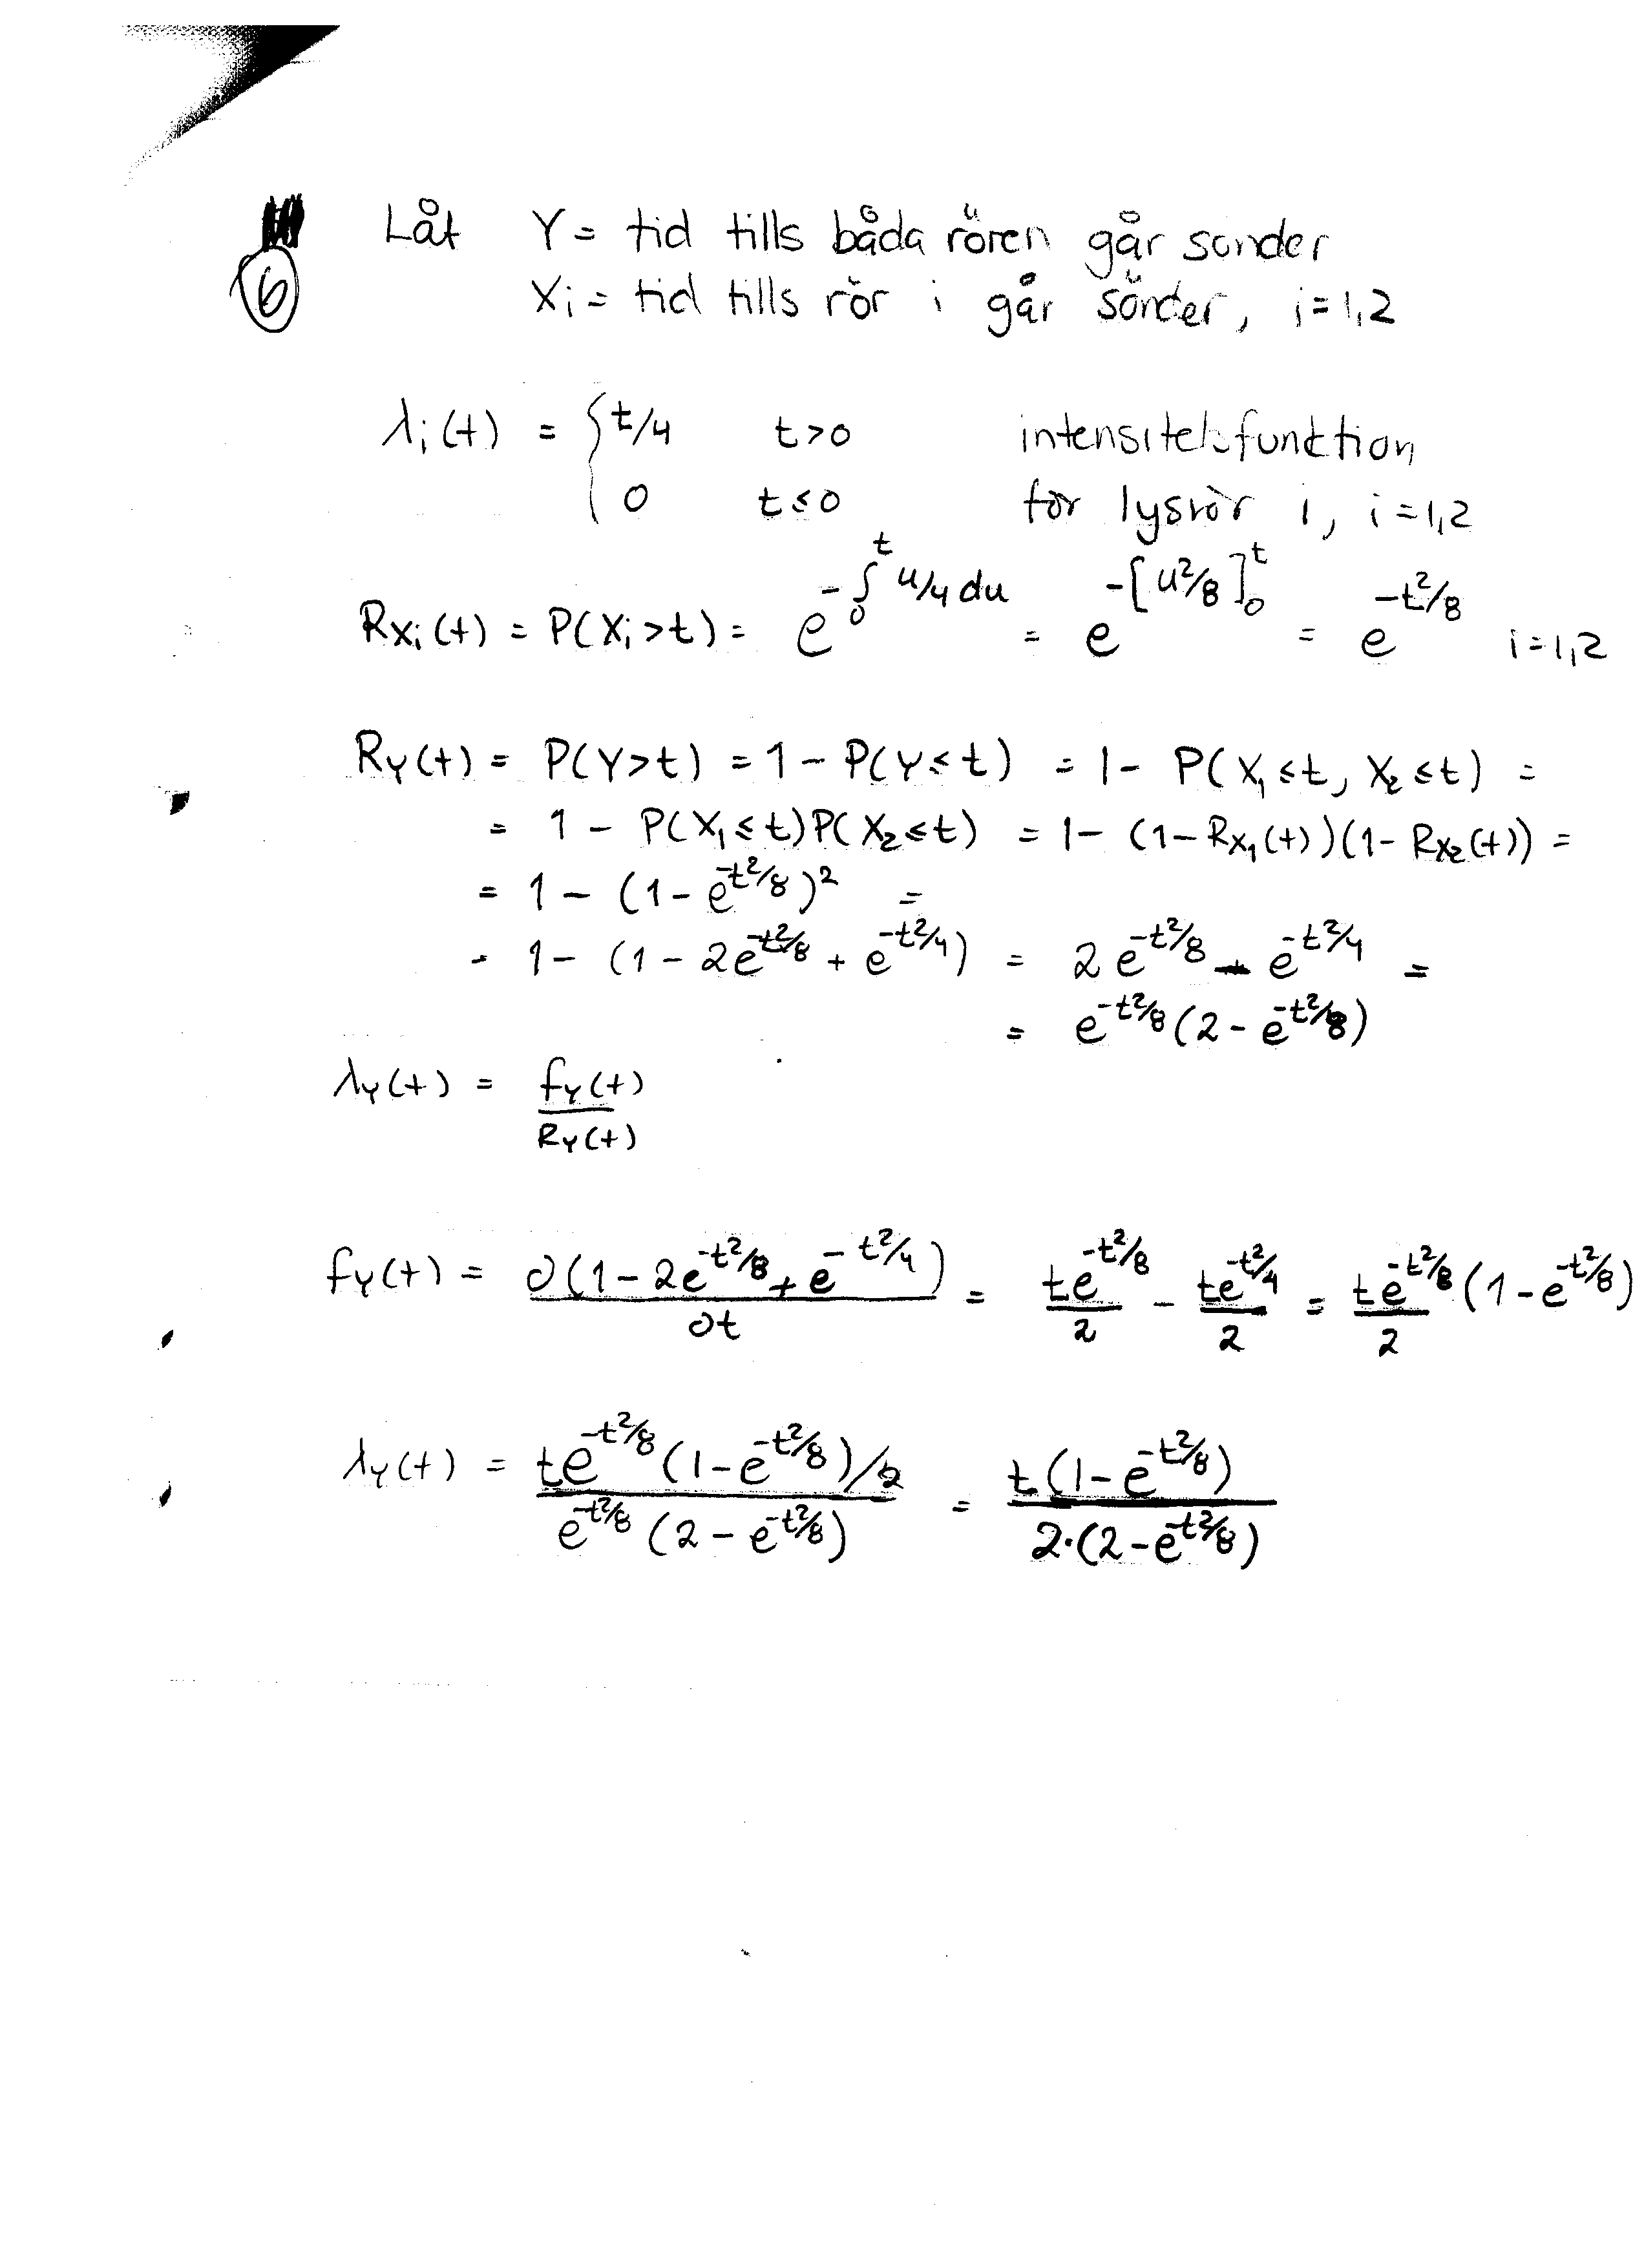 ⑥ Låt Y = tid tills båda rören går sönder
Xi = tid tills rör i går sönder, i=1,2
λi(t) = { t/4 t>0 intensitetsfunktion
0 t≤0 för lysrör i, i=1,2
R_Xi(t) = P(Xi>t) = e^(-∫_0^t u/4 du) = e^(-[u²/8]_0^t) = e^(-t²/8) i=1,2
R_Y(t) = P(Y>t) = 1 - P(Y≤t) = 1 - P(X₁≤t, X₂≤t) =
= 1 - P(X₁≤t)P(X₂≤t) = 1 - (1-R_X₁(t))(1-R_X₂(t)) =
= 1 - (1-e^(-t²/8))² =
= 1 - (1-2e^(-t²/8) + e^(-t²/4)) = 2e^(-t²/8) - e^(-t²/4) =
= e^(-t²/8)(2-e^(-t²/8))
λ_Y(t) = f_Y(t) / R_Y(t)
f_Y(t) = ∂(1-2e^(-t²/8) + e^(-t²/4)) / ∂t = te^(-t²/8) / 2 - te^(-t²/4) / 2 = te^(-t²/8) / 2 (1-e^(-t²/8))
λ_Y(t) = te^(-t²/8)(1-e^(-t²/8))/2 / e^(-t²/8)(2-e^(-t²/8)) = t(1-e^(-t²/8)) / 2·(2-e^(-t²/8))